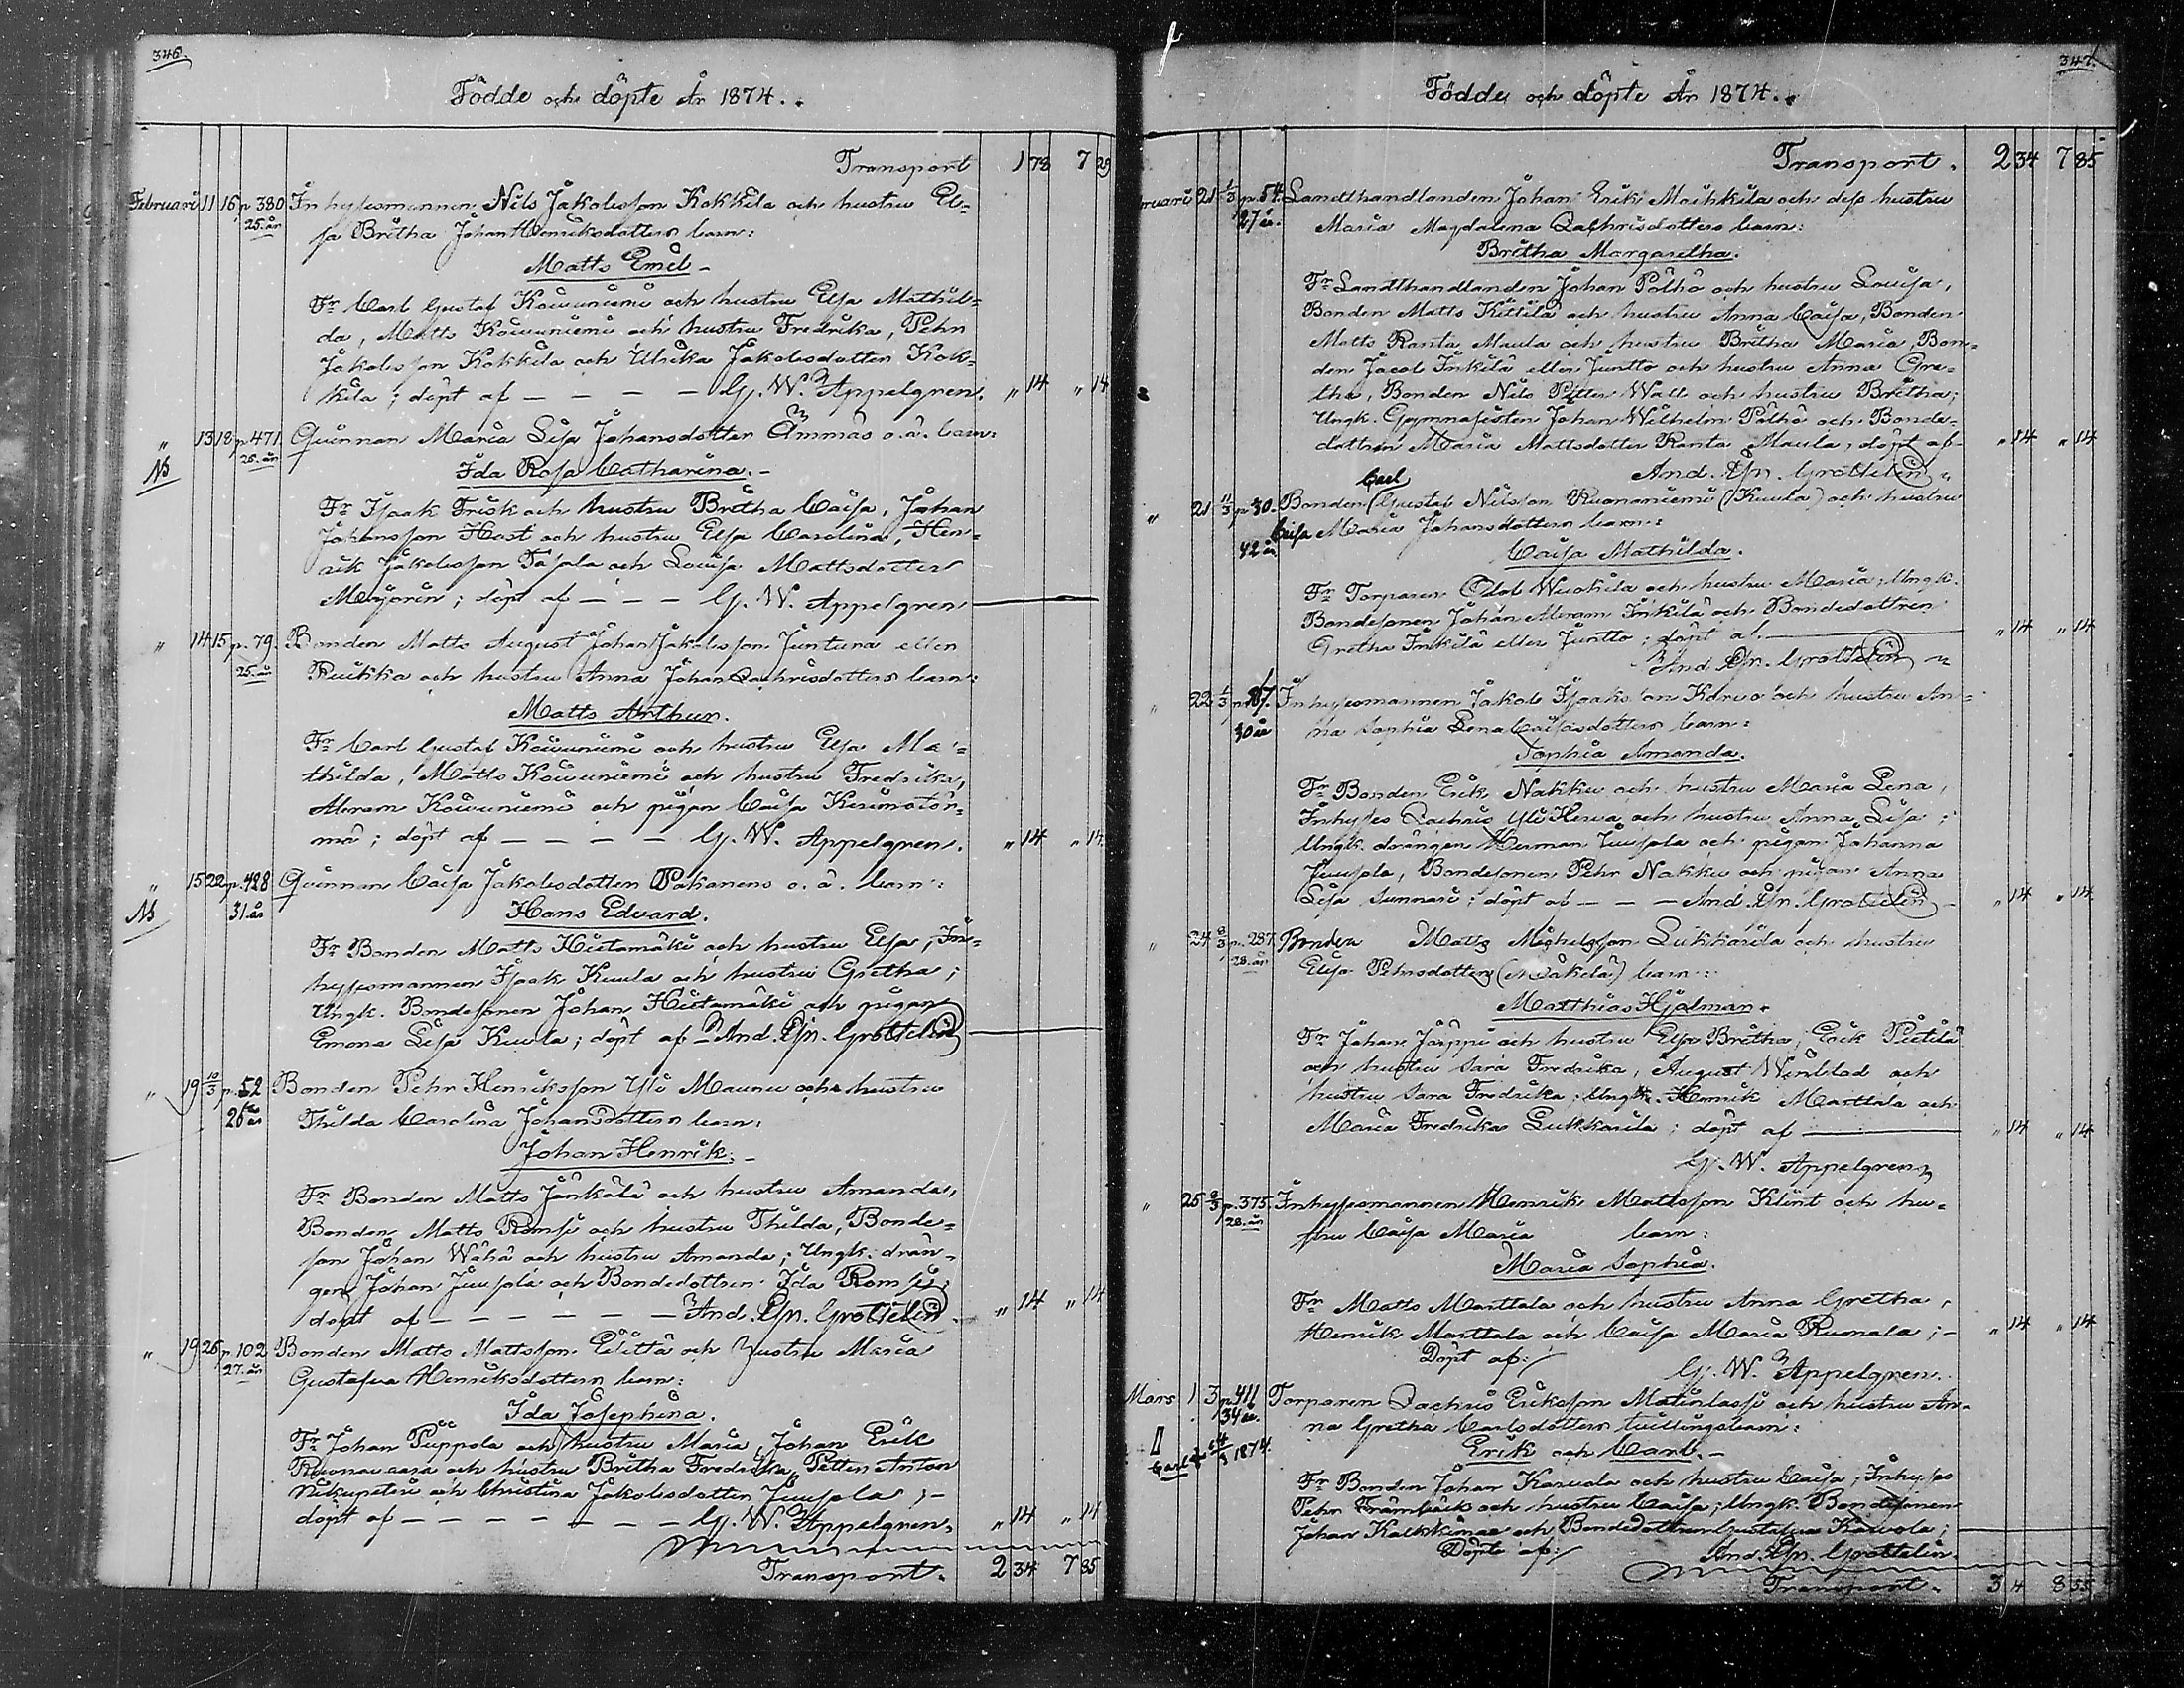 346.
Födde och döpte År 1874.
Transport 1 78 7 29
Februari 11 16 p 380 Inhysesmannen Nils Jakobsson Kokkila och hustru El-
25. år sa Britha Johan Henriksdotters barn:
Matts Emil
Fr Carl Gustaf Koiwuniemi och hustru Elsa Mathil-
da, Matts Koiwuniemi och hustru Fredrika, Pehr
Jakobsson Kokkila och Ulrika Jakobsdotter Kok-
kila; döpt af — — — — G. W. Appelgren. " 14 " 14
" 13 18 p 471. Qvinnan Maria Lisa Johansdotter Ämmäs o. ä. barn:
NB 25. år
Ida Rosa Catharina.
Fr Isaak Frisk och hustru Britha Caisa, Johan
Johansson Hast och hustru Elsa Carolina, Hen-
rik Jakobsson Tasala och Lovisa Mattsdotter
Majorin; döpt af — — — G. W. Appelgren
" 14 15 p. 79. Bonden Matts August Johan Jakobsson Juntura eller
25. år Ruikka och hustru Anna Johan Zachrisdotters barn:
Matts Arthur.
Fr Carl Gustaf Koiwuniemi och hustru Elsa Ma-
thilda, Matts Koiwuniemi och hustru Fredrika,
Abram Koiwuniemi och pigan Caisa Keinotör-
mä; döpt af — — — — G. W. Appelgren. " 14 " 14
" 15 22 p. 428 Qvinnan Caisa Jakobsdotter Pakanens o. ä. barn:
NB 31. år Hans Edvard.
Fr Bonden Matts Hietamäki och hustru Elsa, In-
hysesmannen Isaak Kuula och hustru Gretha;
Ungk. Bondesonen Johan Hietamäki och pigan
Emona Lisa Kuula; döpt af And. Joh. Grottelin
" 19 10/3 p. 52 Bonden Pehr Henriksson Yli Maunu och hustru
26 år Thilda Carolina Johansdotters barn:
Johan Henrik.
Fr Bonden Matts Jänkälä och hustru Amanda,
Bonden Matts Romsi och hustru Thilda, Bonde-
son Johan Wähä och hustru Amanda; Ungk. drän-
gen Johan Juusola och Bondedottren Ida Romsi;
döpt af — — — — — — And. Joh. Grottelin " 14 " 14
" 19 26 p. 102 Bonden Matts Mattsson och hustru Maria
27. år Gustafva Henriksdotters barn:
Ida Josephina.
Fr Johan Piippola och hustru Maria, Johan Erik
Ruonavaara och hustru Britha Fredrika, Petter Anton
Nikupeteri och Christina Jakobsdotter Juusola;
döpt af — — — — — — — G. W. Appelgren. " 14 " 14
Transport. 2 34 7 85
347.
Födde och döpte År 1874.
Transport. 2 34 7 85
ruari 21 1/3 p. 54. Landthandlanden Johan Erik Maihkila och dess hustru
27 år. Maria Magdalena Zachrisdotters barn:
Britha Margaretha.
Fr Landthandlanden Johan Pölhö och hustru Lovisa,
Bonden Matts Kittilä och hustru Anna Caisa, Bonden
Matts Ranta Maula och hustru Britha Maria, Bon-
den Jacob Inkilä eller Juntto och hustru Anna Gre-
tha, Bonden Nils Petter Wall och hustru Britha;
Ungk. Gymnasisten Johan Wilhelm Pölhö och Bonde-
dottren Maria Mattsdotter Ranta Maula, döpt af " 14 " 14
And. Joh. Grottelin
Carl
" 21 11/3 p 30. Bonden Gustaf Nilsson Kuonaniemi (Kuula) och hustru
42 år Caisa Maria Johansdotters barn:
Caisa Mathilda.
Fr Torparen Olob Wuokila och hustru Maria; Ungk.
Bondesonen Johan Abram Inkilä och Bondedottren
Gretha Inkilä eller Juntto; döpt af — " 14 " 14
And. Joh. Grottelin
" 22 1/3 p. 87. Inhysesmannen Jakob Isaksson Karvo och hustru An-
30 år na Sophia Lena Caisasdotters barn:
Sophia Amanda.
Fr Bonden Erik Nakku och hustru Maria Lena,
Inhyses Zachris Yli Herva och hustru Anna Lisa;
Ungk. drängen Herman Juusola och pigan Johanna
Juusola, Bondesonen Pehr Nakku och pigan Anna
Lisa Sunnari; döpt af — — — And. Joh. Grottelin " 14 " 14
" 24 8/3 p. 287. Bonden Matts Michelsson Lukkarila och hustru
28. år Elisa Pehrsdotters (Mäkelä) barn:
Matthias Hjalmar.
Fr Johan Järppi och hustru Elsa Britha, Erik Pietilä
och hustru Sara Fredrika, August Winblad och
hustru Sara Fredrika; Ungk. Henrik Marttala och
Maria Fredrika Lukkarila; döpt af — " 14 " 14
G. W. Appelgren
" 25 8/3 p. 375. Inhysesmannen Henrik Mattsson Klint och hu-
28. år stru Caisa Maria barn:
Maria Sophia.
Fr Matts Marttala och hustru Anna Gretha,
Henrik Marttala och Caisa Maria Ruonala; " 14 " 14
Döpt af: G. W. Appelgren.
Mars 1 3 p. 411 Torparen Zachris Eriksson Matinlassi och hustru An-
34 år. na Gretha Carlsdotters tvillingsbarn:
II Erik och Carl.
Carl 1874.
Fr Bonden Johan Karvola och hustru Caisa; Inhyses
Pehr Frambäck och hustru Caisa; Ungk. Bondesonen
Johan Kalkkimaa och Bondedottren Gustafva Karvola;
Döpte af: And. Joh. Grottelin.
Transport. 3 4 8 55